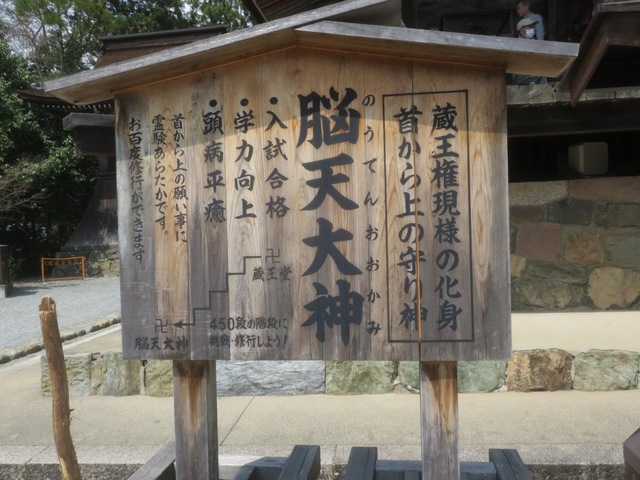 蔵王権現様の化身
首から上の守り神
のうてんおおかみ
脳天大神
・入試合格
・学力向上
・頭病平癒
首から上の願い事に
霊験あらたかです。
お百度修行ができます。
卍
蔵王堂
450段の階段に
挑戦・修行しよう!
卍
脳天大神